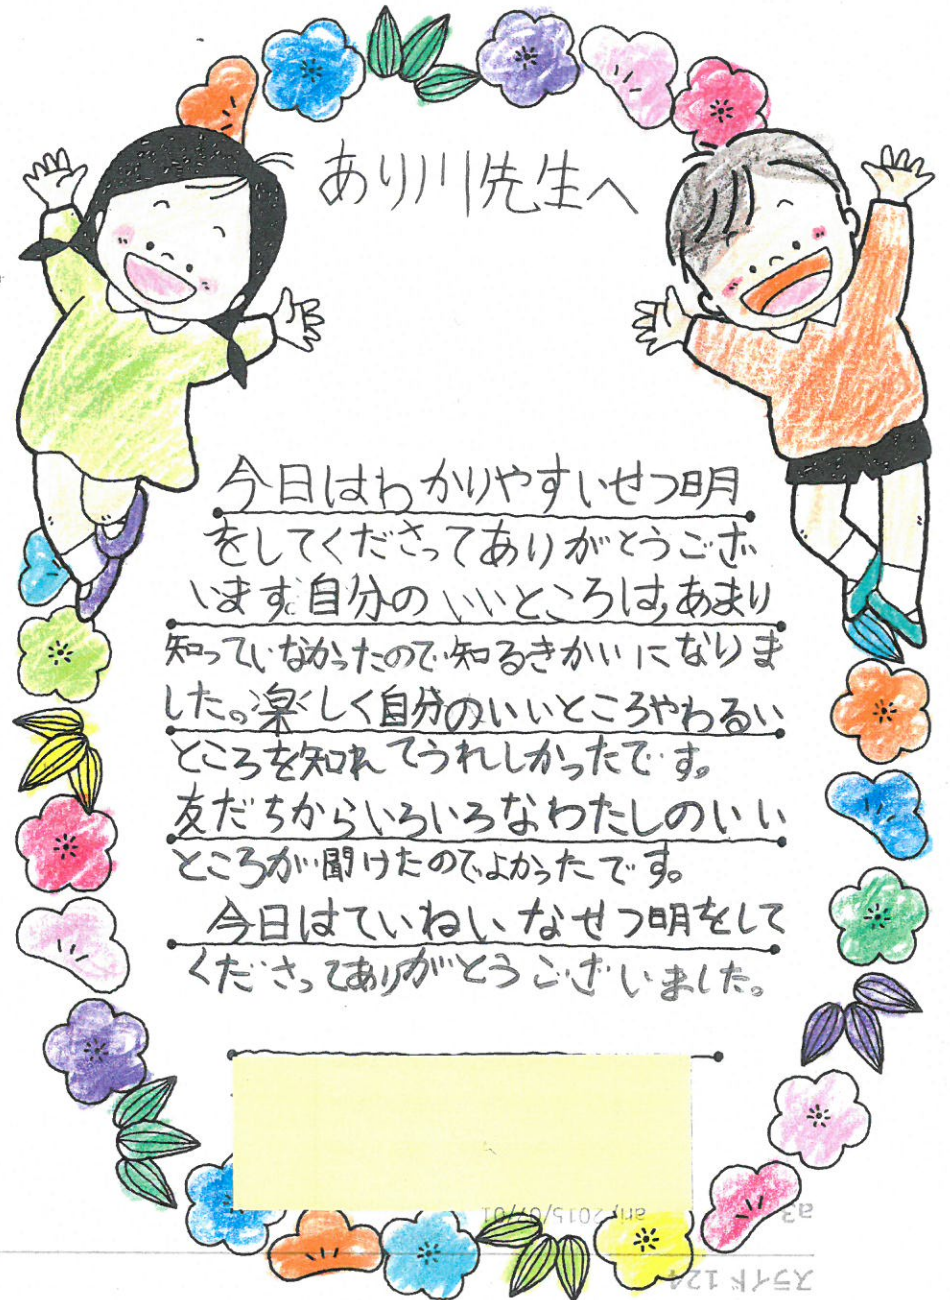 あり川先生へ
今日はわかりやすいせつ明
をしてくださってありがとうござ
います。自分のいいところは、あまり
知っていなかったので知るきかいになりま
した。楽しく自分のいいところやわるい
ところを知れてうれしかったです。
友だちからいろいろなわたしのいい
ところが聞けたのでよかったです。
今日はていねいなせつ明をして
くださってありがとうございました。
a3
スライド 124